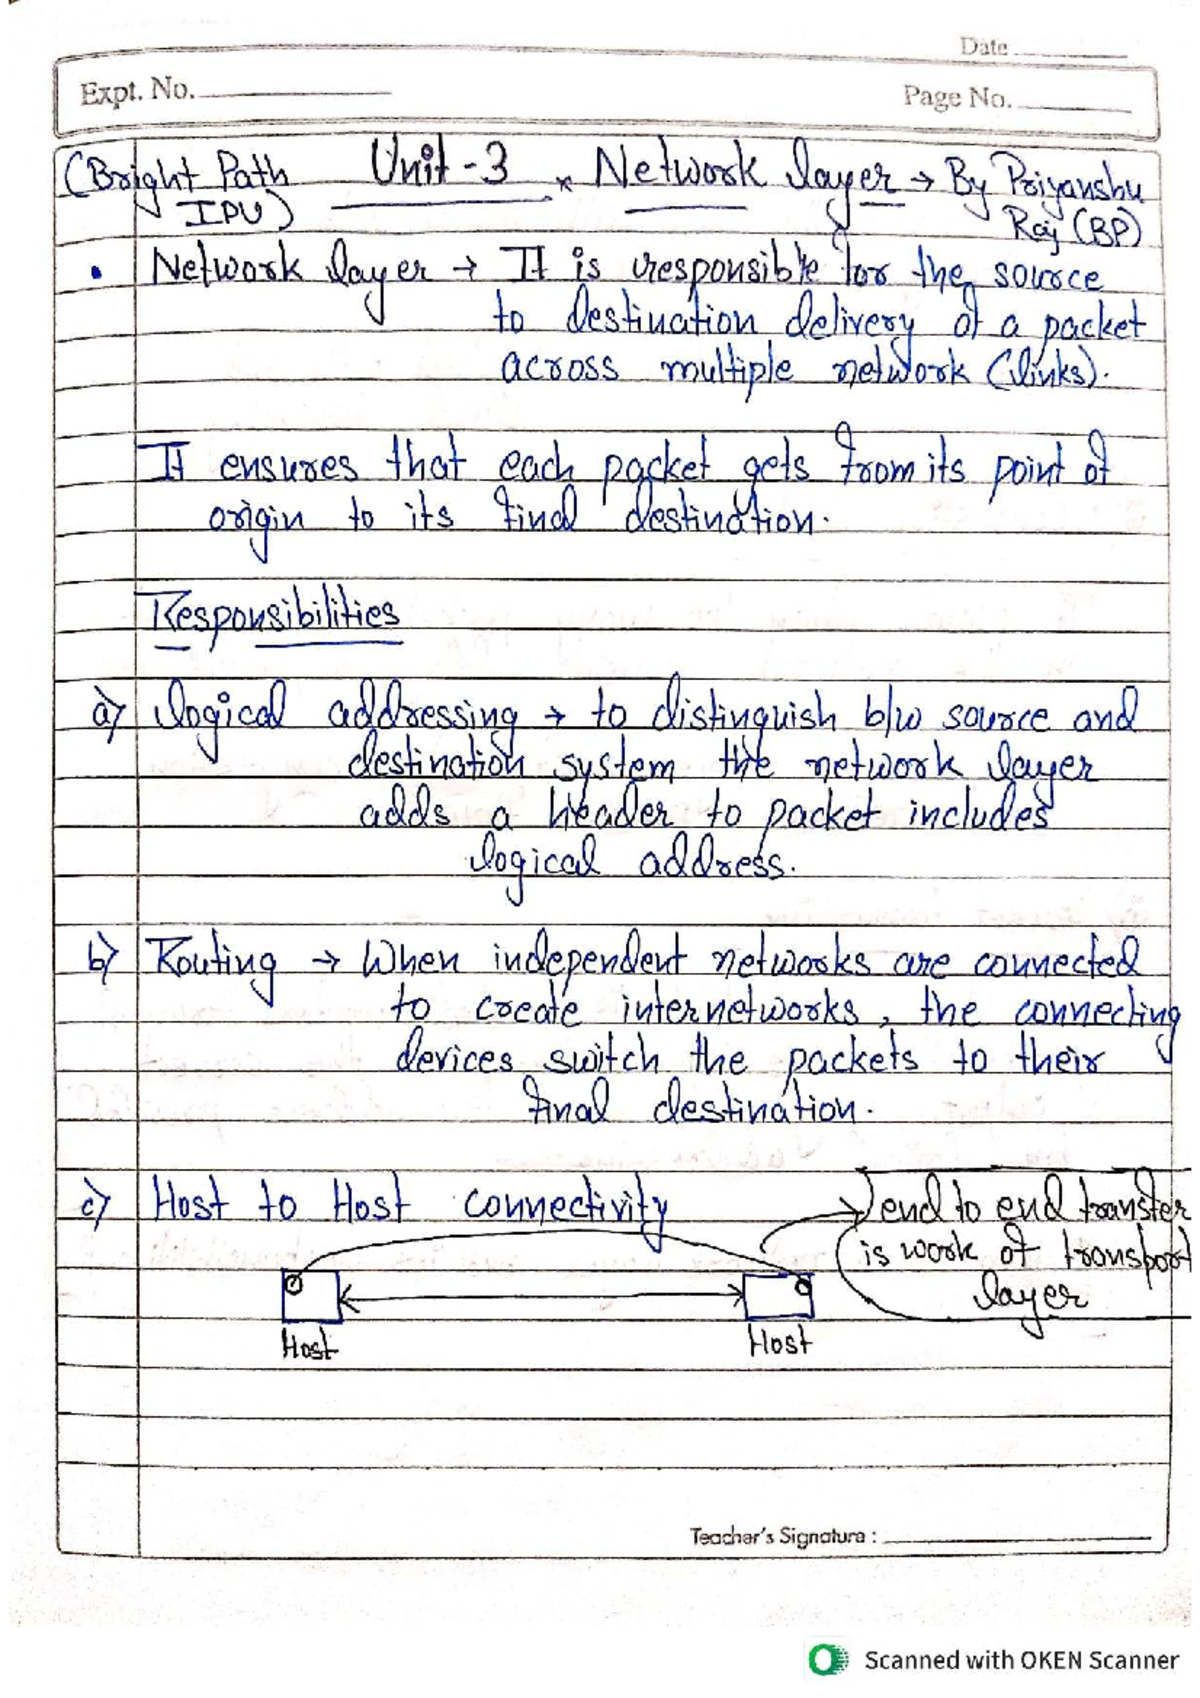 Date
Expt. No.
Page No.
(Bright Path Unit-3 × Network layer → By Priyanshu
IPU) Raj (BP)
• Network layer → It is responsible for the source
to destination delivery of a packet
across multiple network (links).
It ensures that each packet gets from its point of
origin to its final destination.
Responsibilities
a) logical addressing → to distinguish b/w source and
destination system the network layer
adds a header to packet includes
logical address.
b) Routing → When independent networks are connected
to create internetworks, the connecting
devices switch the packets to their
final destination.
c) Host to Host connectivity
end to end transfer
is work of transport
layer
Host Host
Teacher's Signature :
Scanned with OKEN Scanner